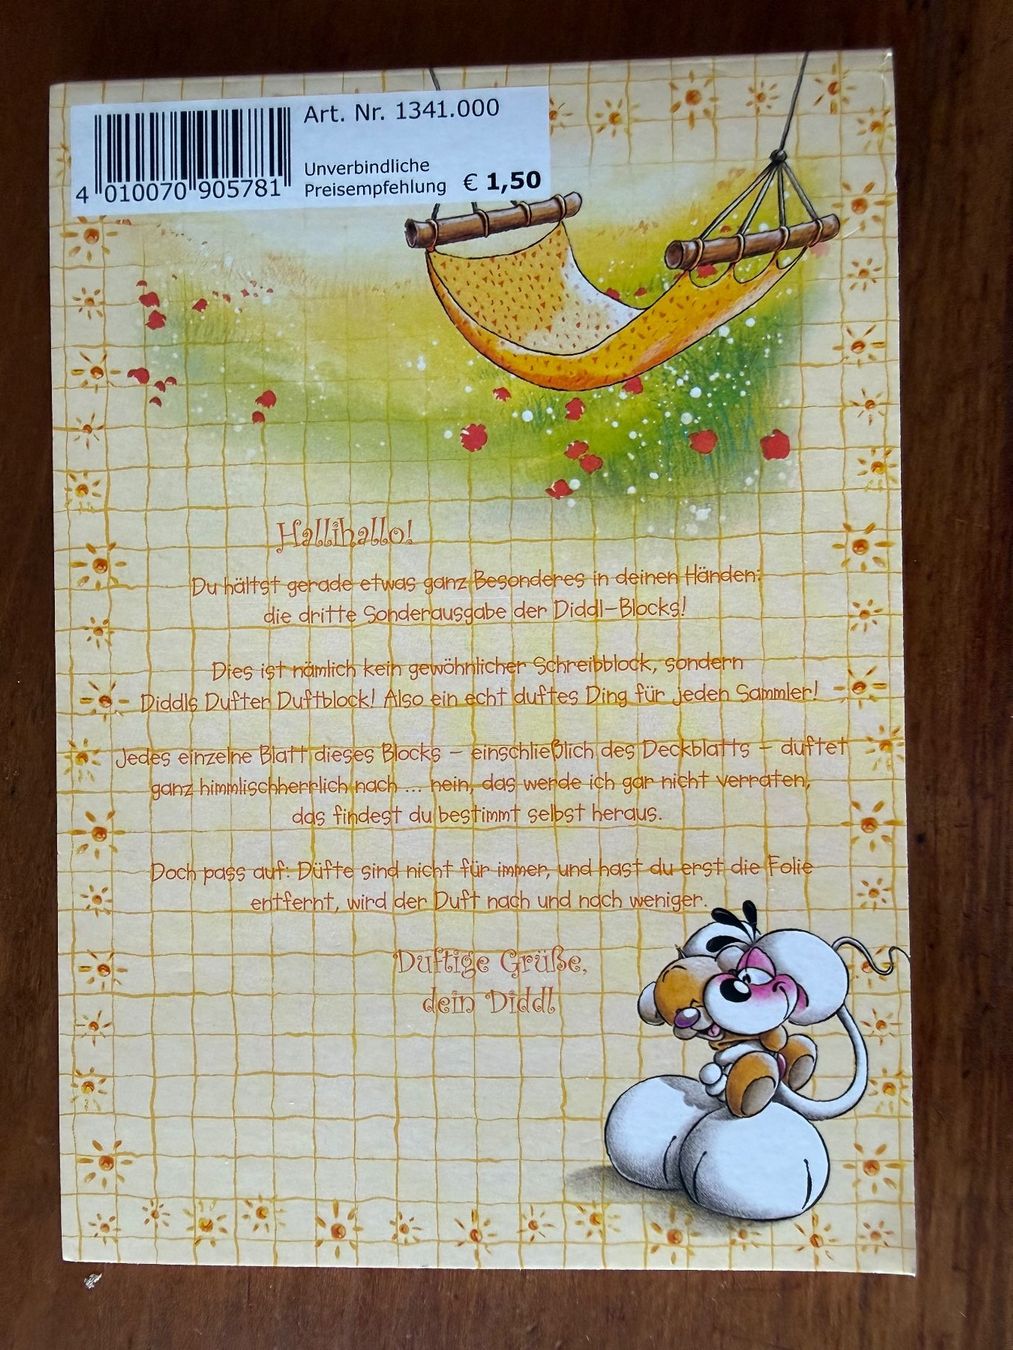 Art. Nr. 1341.000
Unverbindliche
Preisempfehlung € 1,50
4 010070 905781
Hallihallo!
Du hältst gerade etwas ganz Besonderes in deinen Händen:
die dritte Sonderausgabe der Diddl-Blocks!
Dies ist nämlich kein gewöhnlicher Schreibblock, sondern
Diddls Dufter Duftblock! Also ein echt duftes Ding für jeden Sammler!
Jedes einzelne Blatt dieses Blocks – einschließlich des Deckblatts – duftet
ganz himmlischherrlich nach ... nein, das werde ich gar nicht verraten,
das findest du bestimmt selbst heraus.
Doch pass auf: Düfte sind nicht für immer, und hast du erst die Folie
entfernt, wird der Duft nach und nach weniger.
Duftige Grüße,
dein Diddl